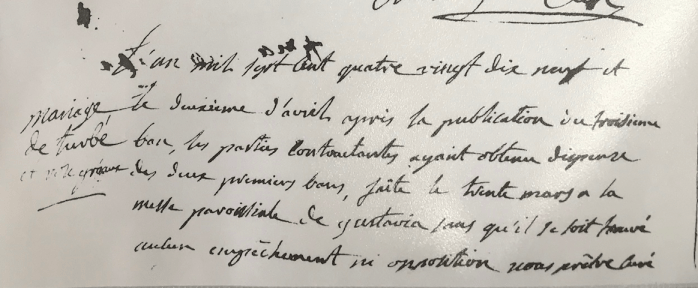 L'an mil sept cent quatre vingt dix neuf et
mariage
le deuxieme d'avril apres la publication du troisieme
de turbé
ban, les parties contractantes ayant obtenu dispense
et
des deux premiers bans, faite le trente mars a la
messe paroissiale de gustavia sans qu'il se soit trouvé
aucun empêchement ni opposition nous prêtre curé